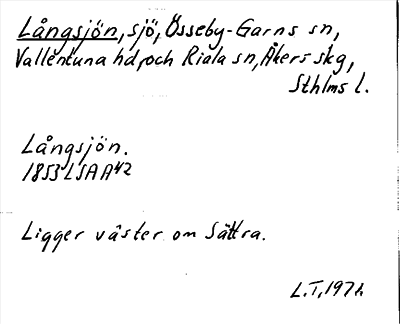 Långsjön, sjö, Össeby-Garns sn,
Vallentuna hd, och Riala sn, Åkers skg,
Sthlms l.
Långsjön.
1853 LSA A42
Ligger väster om Sättra.
L.T, 197